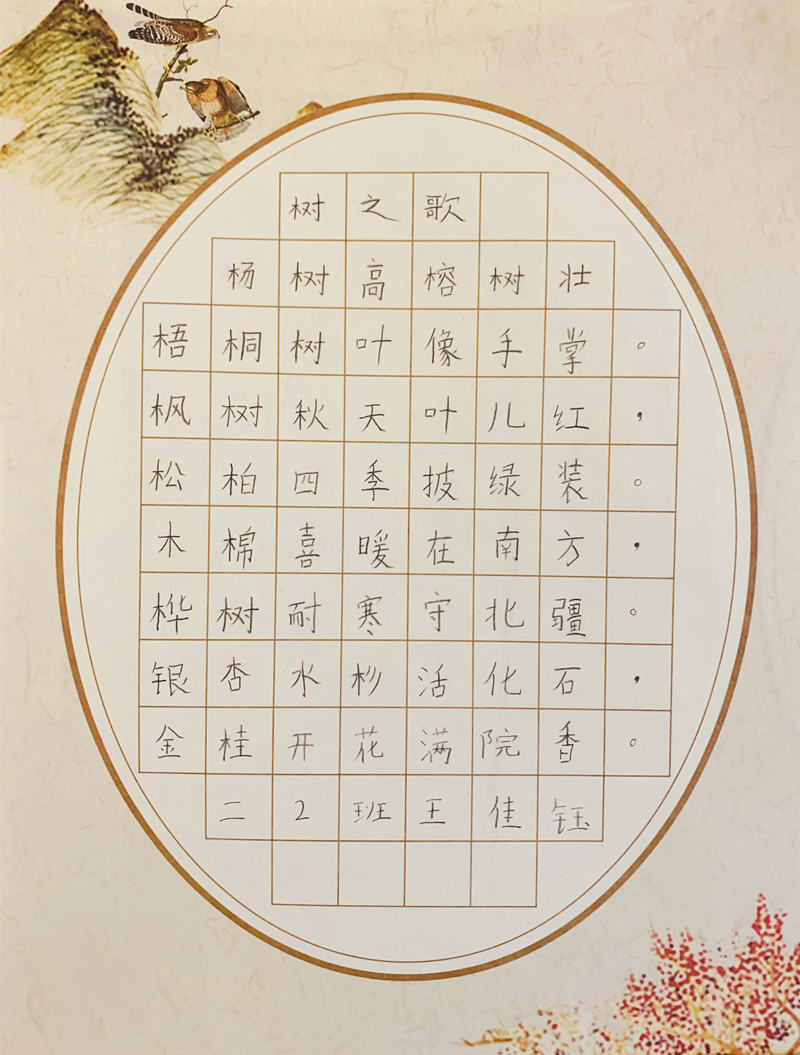 树之歌
杨树高榕树壮
梧桐树叶像手掌。
枫树秋天叶儿红,
松柏四季披绿装。
木棉喜暖在南方,
桦树耐寒守北疆。
银杏水杉活化石,
金桂开花满院香。
二2班王佳钰